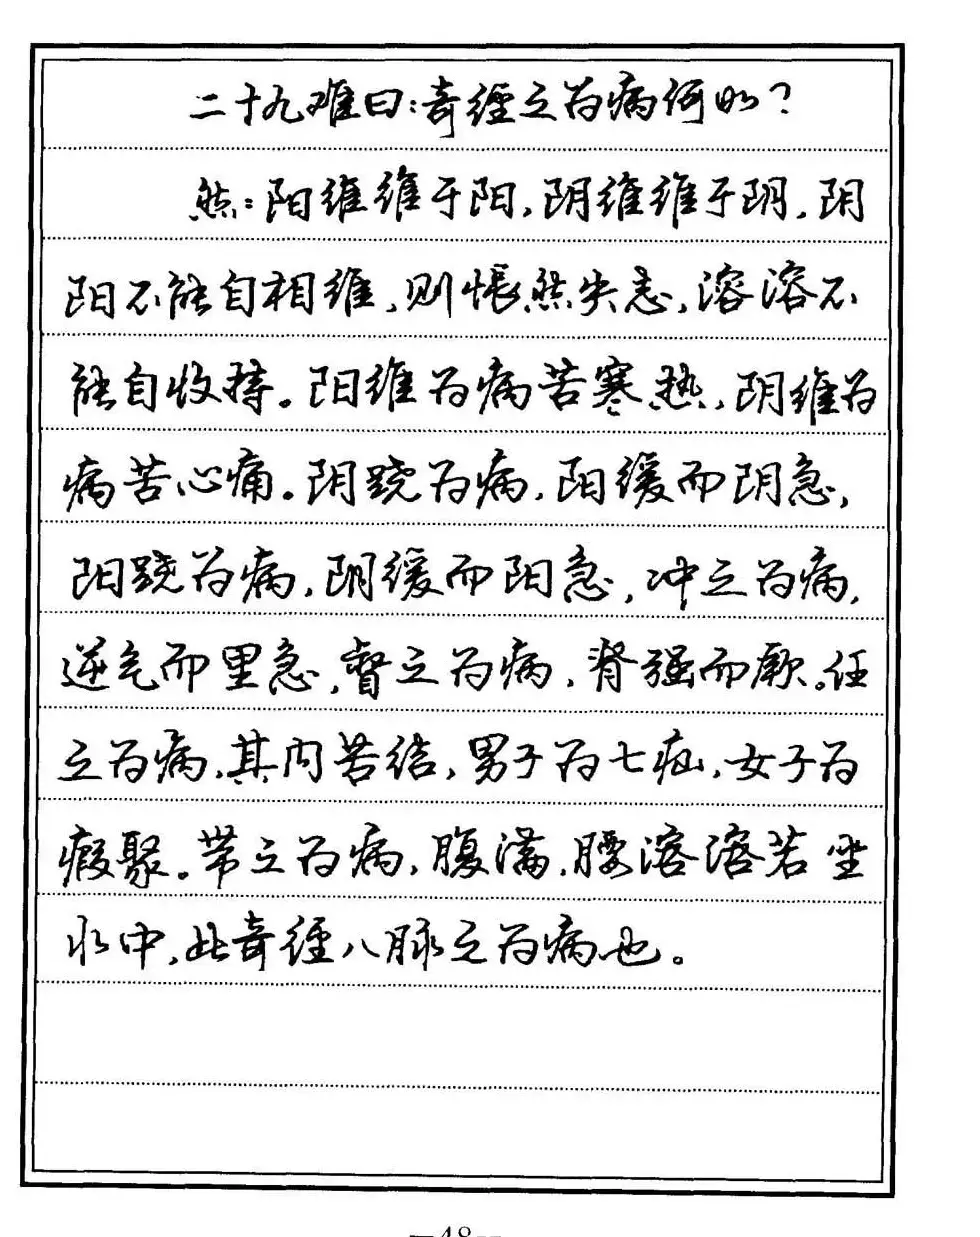 二十九难曰：奇经之为病何如？
然：阳维维于阳，阴维维于阴，阴
阳不能自相维，则怅然失志，溶溶不
能自收持。阳维为病苦寒热，阴维为
病苦心痛。阴跷为病，阳缓而阴急，
阳跷为病，阴缓而阳急，冲之为病，
逆气而里急，督之为病，脊强而厥。任
之为病，其内苦结，男子为七疝，女子为
瘕聚。带之为病，腹满，腰溶溶若坐
水中，此奇经八脉之为病也。
—48—